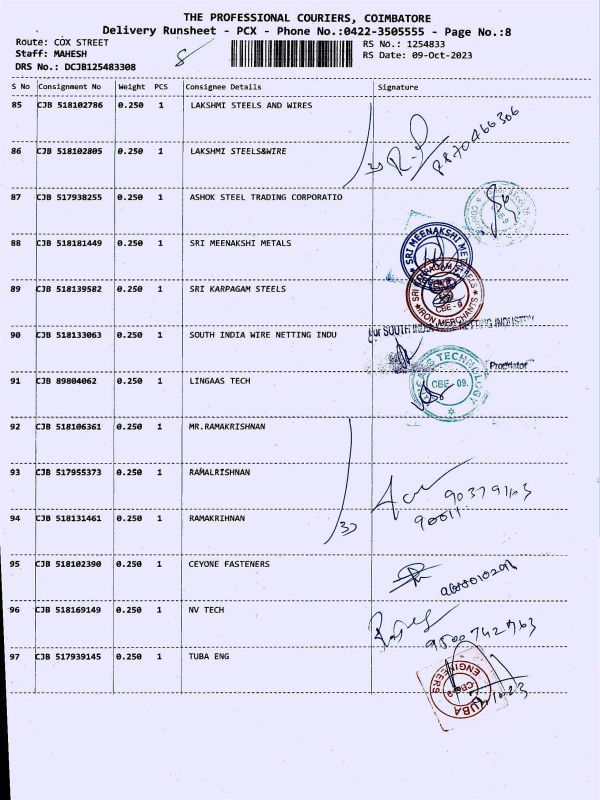 THE PROFESSIONAL COURIERS, COIMBATORE
Delivery Runsheet - PCX - Phone No.:0422-3505555 - Page No.:8
Route: COX STREET RS No.: 1254833
Staff: MAHESH RS Date: 09-Oct-2023
DRS No.: DCJB125483308
8
S No Consignment No Weight PCS Consignee Details Signature
85 CJB 518102786 0.250 1 LAKSHMI STEELS AND WIRES
86 CJB 518102805 0.250 1 LAKSHMI STEELS&WIRE
87 CJB 517938255 0.250 1 ASHOK STEEL TRADING CORPORATIO
88 CJB 518181449 0.250 1 SRI MEENAKSHI METALS
SRI MEENAKSHI
89 CJB 518139582 0.250 1 SRI KARPAGAM STEELS
CBE - 9
IRON MERCHANTS
90 CJB 518133063 0.250 1 SOUTH INDIA WIRE NETTING INDU
for SOUTH INDIA WIRE NETTING INDUSTRY
Proprietor
91 CJB 89804062 0.250 1 LINGAAS TECH
TECHNOLOGY
CBE - 09.
92 CJB 518106361 0.250 1 MR.RAMAKRISHNAN
93 CJB 517955373 0.250 1 RAMALRISHNAN
94 CJB 518131461 0.250 1 RAMAKRIHNAN
95 CJB 518102390 0.250 1 CEYONE FASTENERS
96 CJB 518169149 0.250 1 NV TECH
9500742763
97 CJB 517939145 0.250 1 TUBA ENG
TUBA ENGINEERS
CBE-9